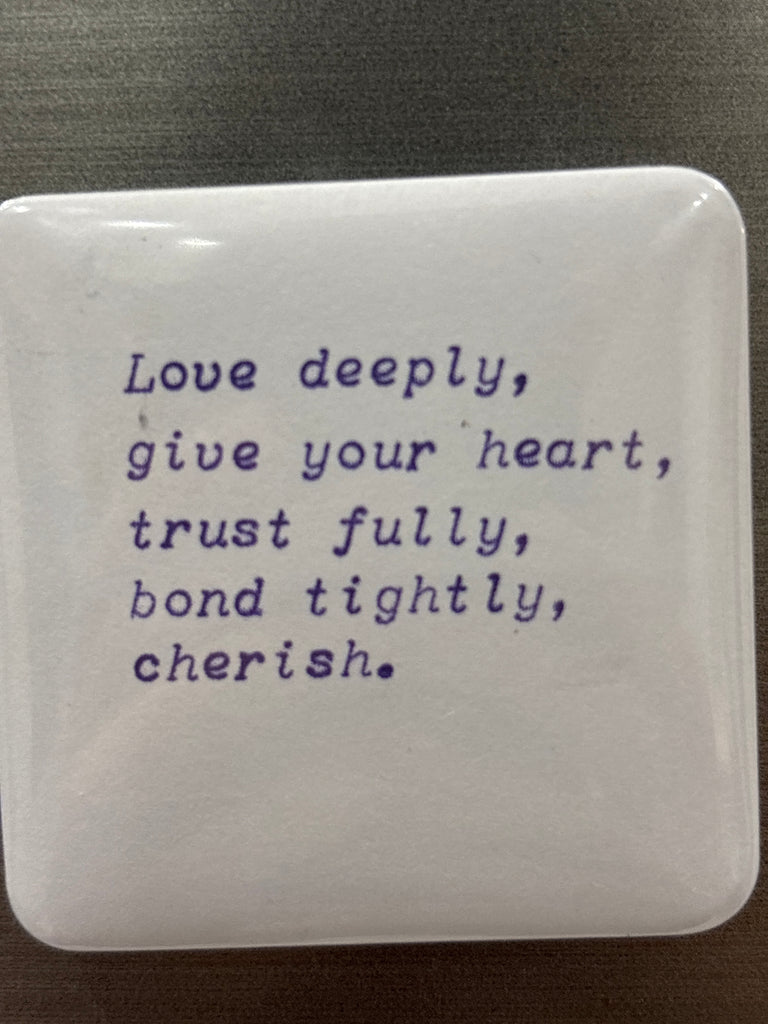 Love deeply,
give your heart,
trust fully,
bond tightly,
cherish.